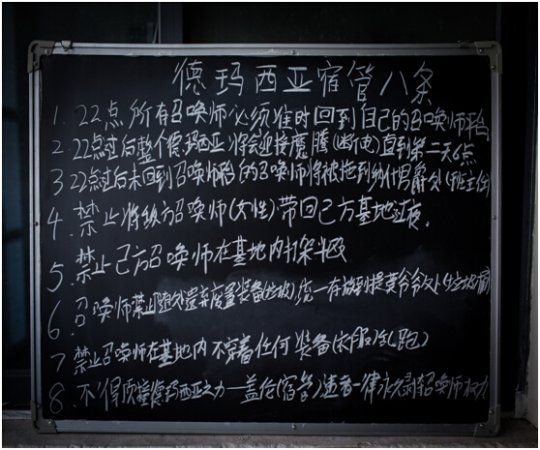 德玛西亚宿管八条
1. 22点所有召唤师必须准时回到自己的召唤师平台
2. 22点过后整个德玛西亚将会迎接魔腾(断电)直到第二天6点
3 22点过后未回到召唤师平台的召唤师将被拖到纳什男爵处(班主任)
4. 禁止将敌方召唤师(女性)带回己方基地过夜.
5. 禁止己方召唤师在基地内打架斗殴
6. 召唤师禁止随处遗弃废置装备(垃圾)统一存放到提莫
7 禁止召唤师在基地内不穿着任何装备(衣服)乱跑)
8. 不得欺骗德玛西亚之力—盖伦(宿管)违者一律永久剥夺召唤师权力